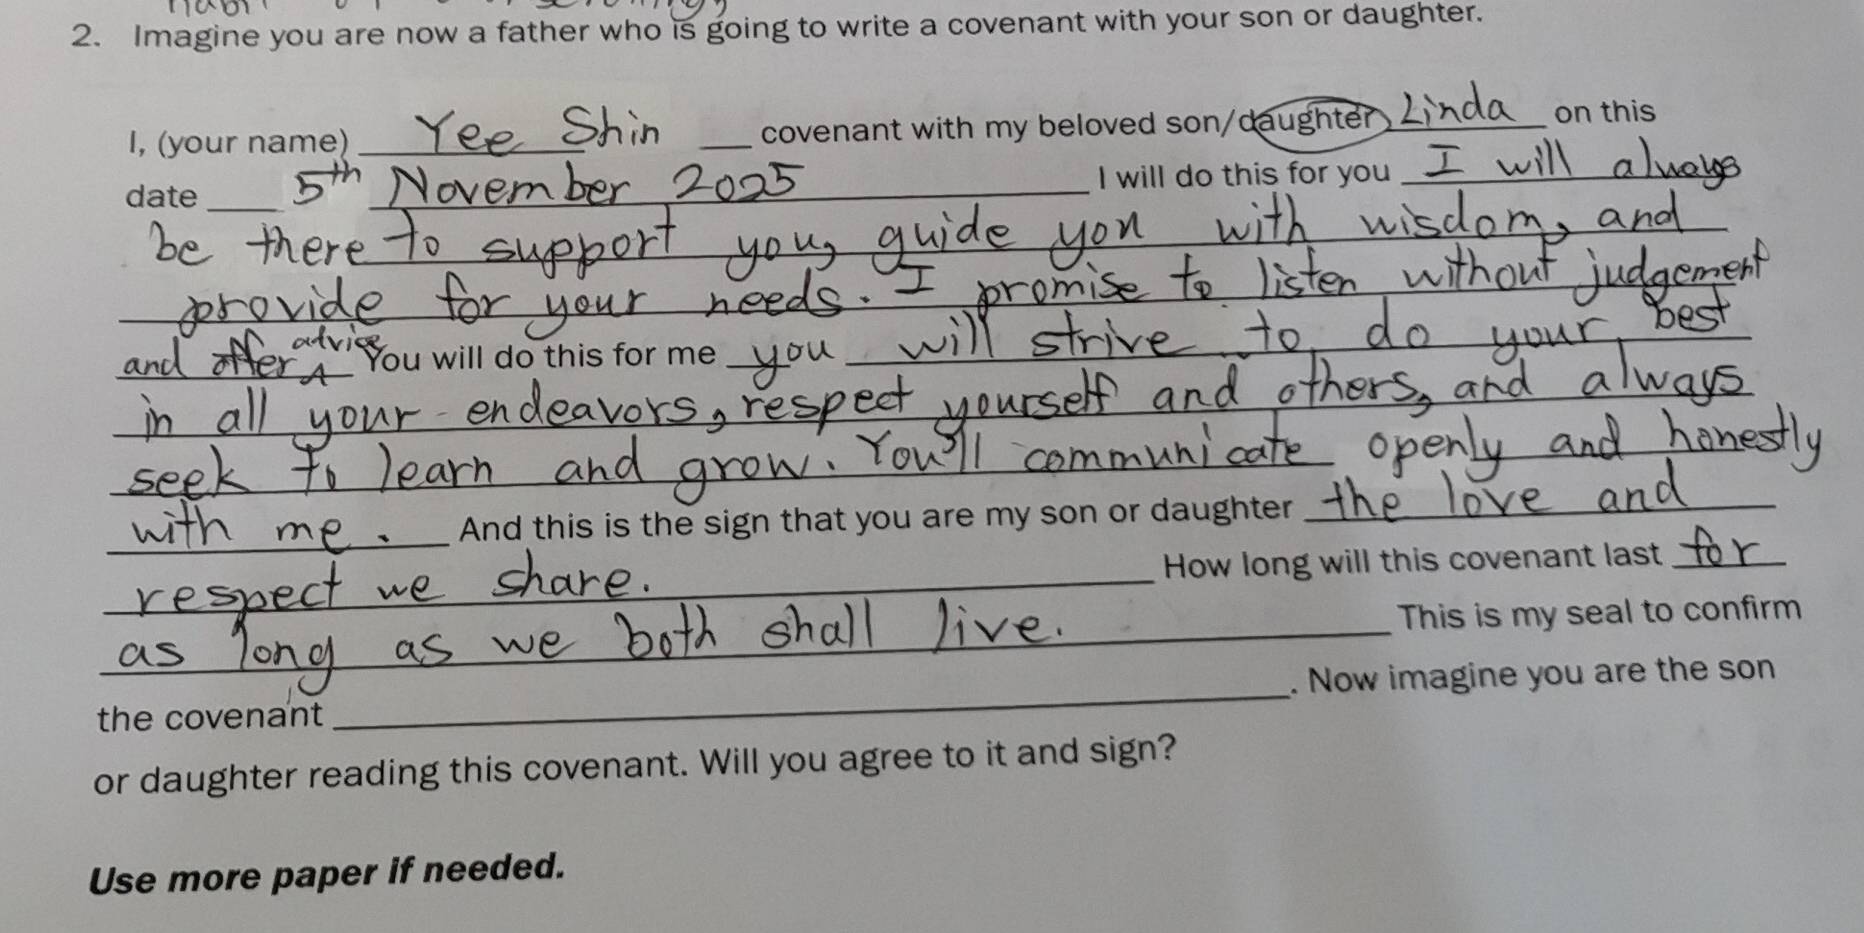 2. Imagine you are now a father who is going to write a covenant with your son or daughter.
I, (your name) Yee Shin covenant with my beloved son/daughter Linda on this
date 5th November 2025 I will do this for you I will always
be there to support you, guide you with wisdom, and
provide for your needs. I promise to listen without judgement
and offer advice You will do this for me you will strive to do your best
in all your endeavors, respect yourself and others, and always
seek to learn and grow. You'll communicate openly and honestly
with me. And this is the sign that you are my son or daughter the love and
respect we share. How long will this covenant last for
as long as we both shall live. This is my seal to confirm
the covenant . Now imagine you are the son
or daughter reading this covenant. Will you agree to it and sign?
Use more paper if needed.